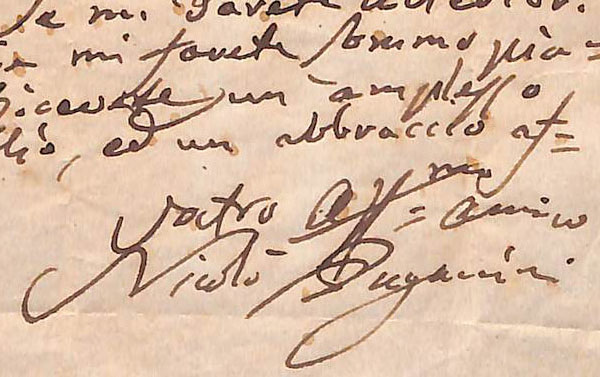 e mi farete
mi farete sommo pia=
Ricevete un amplesso
ed un abbraccio af=
Vostro Aff.mo = amico
Nicolò Paganini